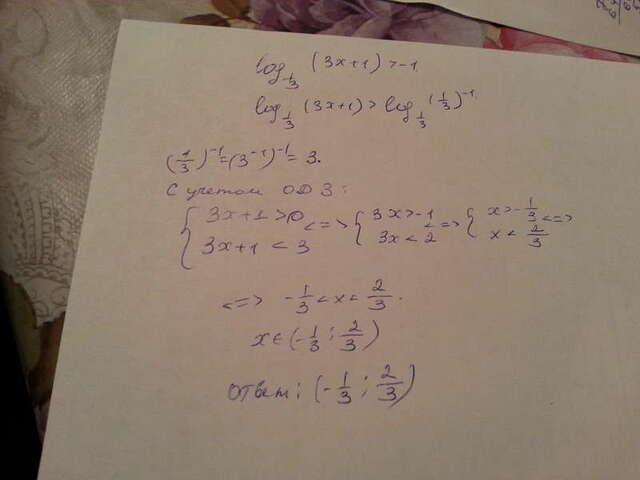 log_{1/3} (3x+1) > -1.
log_{1/3} (3x+1) > log_{1/3} (1/3)^{-1}.
(1/3)^{-1} = (3^{-1})^{-1} = 3.
С учетом ОДЗ:
{ 3x+1 > 0 <=> { 3x > -1 <=> { x > -1/3 <=>
{ 3x+1 < 3 { 3x < 2 { x < 2/3
<=> -1/3 < x < 2/3.
x ∈ (-1/3 ; 2/3)
Ответ: (-1/3 ; 2/3)